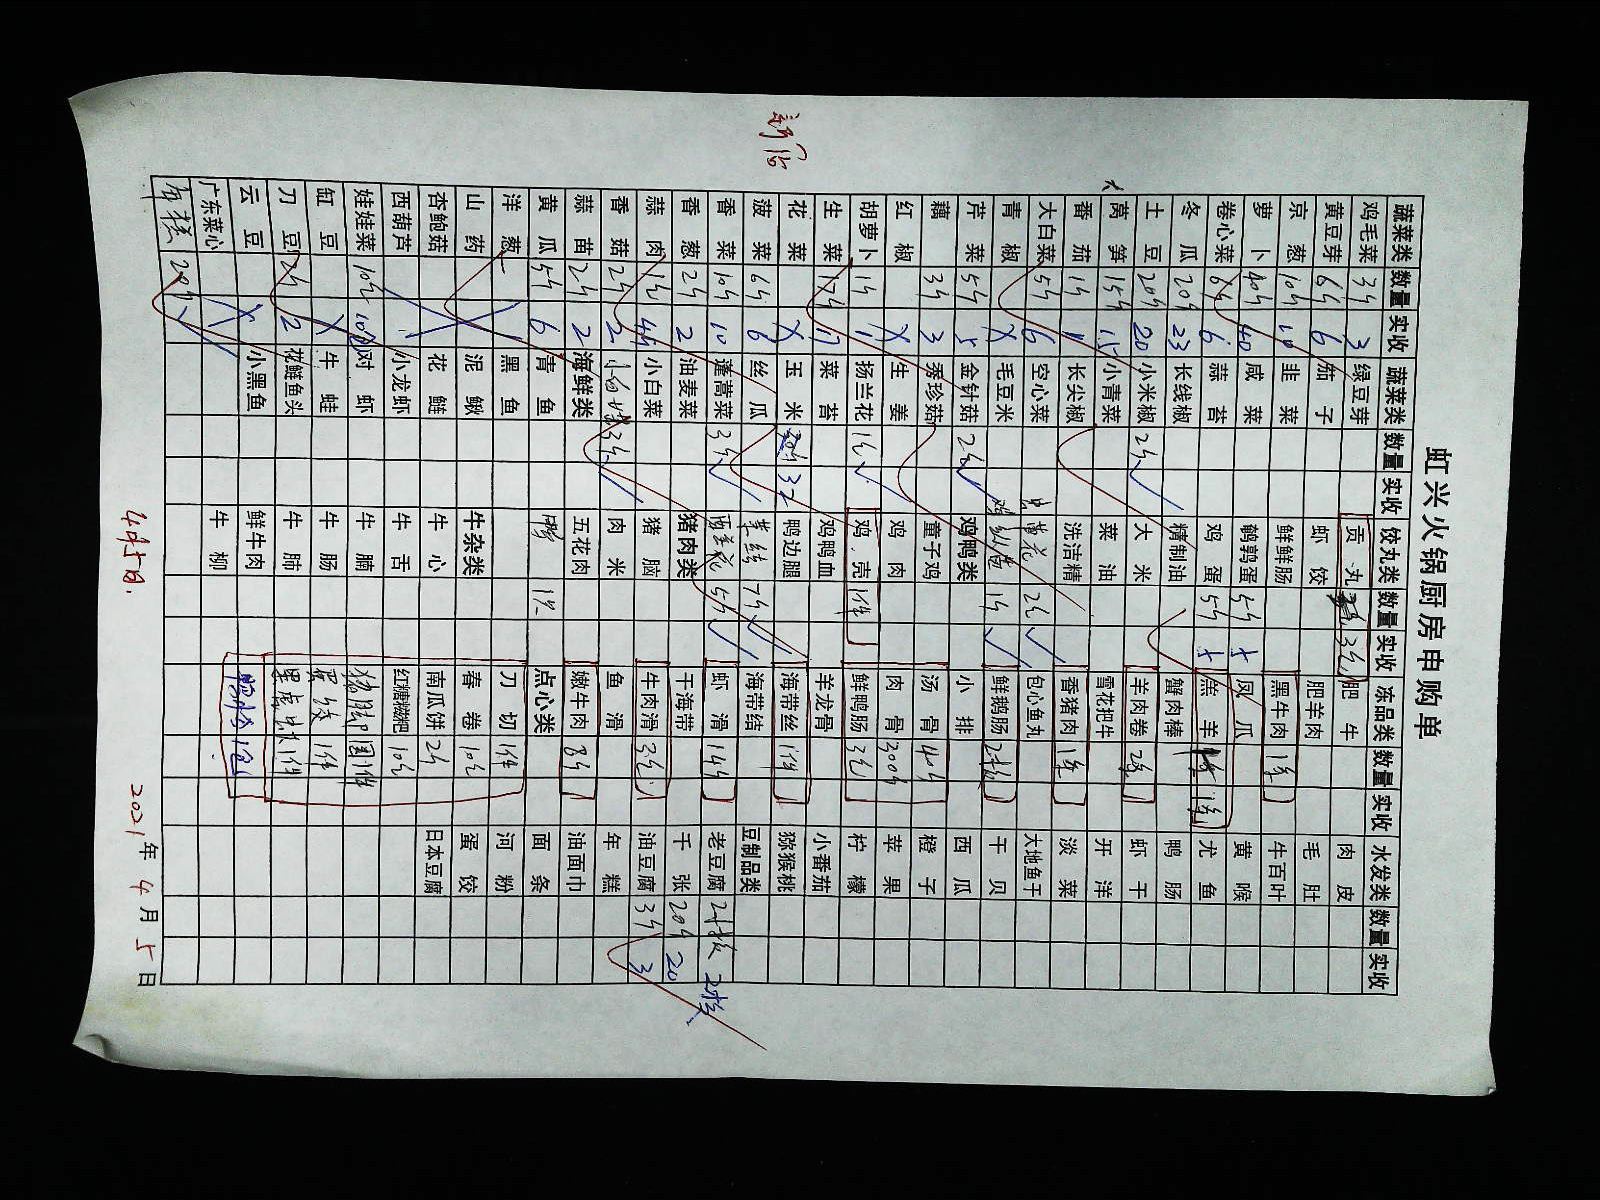 虹兴火锅厨房申购单
蔬菜类 数量 实收 蔬菜类 数量 实收 饺丸类 数量 实收 冻品类 数量 实收 水发类 数量 实收
鸡毛菜 3斤 3 绿豆芽 贡丸 3包 肥牛 肉皮
黄豆芽 6斤 6 茄子 虾饺 肥羊肉 毛肚
京葱 10斤 10 韭菜 鲜鲜肠 黑牛肉 1条 牛百叶
萝卜 40斤 40 咸菜 鹌鹑蛋 5斤 凤瓜 黄喉
卷心菜 6斤 6 蒜苔 鸡蛋 5斤 羔羊 尤鱼
冬瓜 20斤 23 长线椒 精制油 蟹肉棒 鸭肠
土豆 20斤 20 小米椒 2斤 大米 羊肉卷 2条 虾干
莴笋 15斤 15 小青菜 菜油 雪花把牛 开洋
番茄 1斤 长尖椒 洗洁精 香猪肉 1条 淡菜
大白菜 5斤 6 空心菜 黄花 2包 包心鱼丸 大地鱼干
青椒 X 毛豆米 1斤 鲜鹅肠 2板 干贝
芹菜 5斤 5 金针菇 2包 鸡鸭类 小排 西瓜
藕 3斤 3 秀珍菇 童子鸡 汤骨 40斤 橙子
红椒 X 生姜 鸡肉 肉骨 300斤 苹果
胡萝卜 1斤 1 扬兰花 1包 鸡壳 1件 鲜鸭肠 3包 柠檬
生菜 17斤 17 菜苔 鸡鸭血 羊龙骨 小番茄
花菜 X 玉米 30斤 32 鸭边腿 海带丝 1件 猕猴桃
菠菜 6斤 6 丝瓜 7斤 海带结 豆制品类
香菜 10斤 10 蓬蒿菜 3斤 西兰花 5斤 虾滑 14斤 老豆腐 2板 2板
香葱 2斤 2 油麦菜 猪肉类 干海带 千张 20斤 20
蒜肉 小白菜 猪脑 牛肉滑 3包 油豆腐 3斤 3
香菇 2斤 2 3斤 肉米 鱼滑 年糕
蒜苗 2斤 2 海鲜类 五花肉 嫩牛肉 8斤 油面巾
黄瓜 5斤 6 青鱼 点心类 面条
洋葱 黑鱼 刀切 1件 河粉
山药 泥鳅 牛杂类 春卷 10包 蛋饺
杏鲍菇 花鲢 牛心 南瓜饼 2包 日本豆腐
西葫芦 小龙虾 牛舌 红糖糍粑 10包
娃娃菜 10包 10 对虾 牛腩 1件
缸豆 X 牛蛙 牛肠 1件
刀豆 2斤 2 花鲢鱼头 牛肺 1件
云豆 X 小黑鱼 鲜牛肉 1包
广东菜心 牛柳
年糕 20斤
4月5日. 2021年4月5日